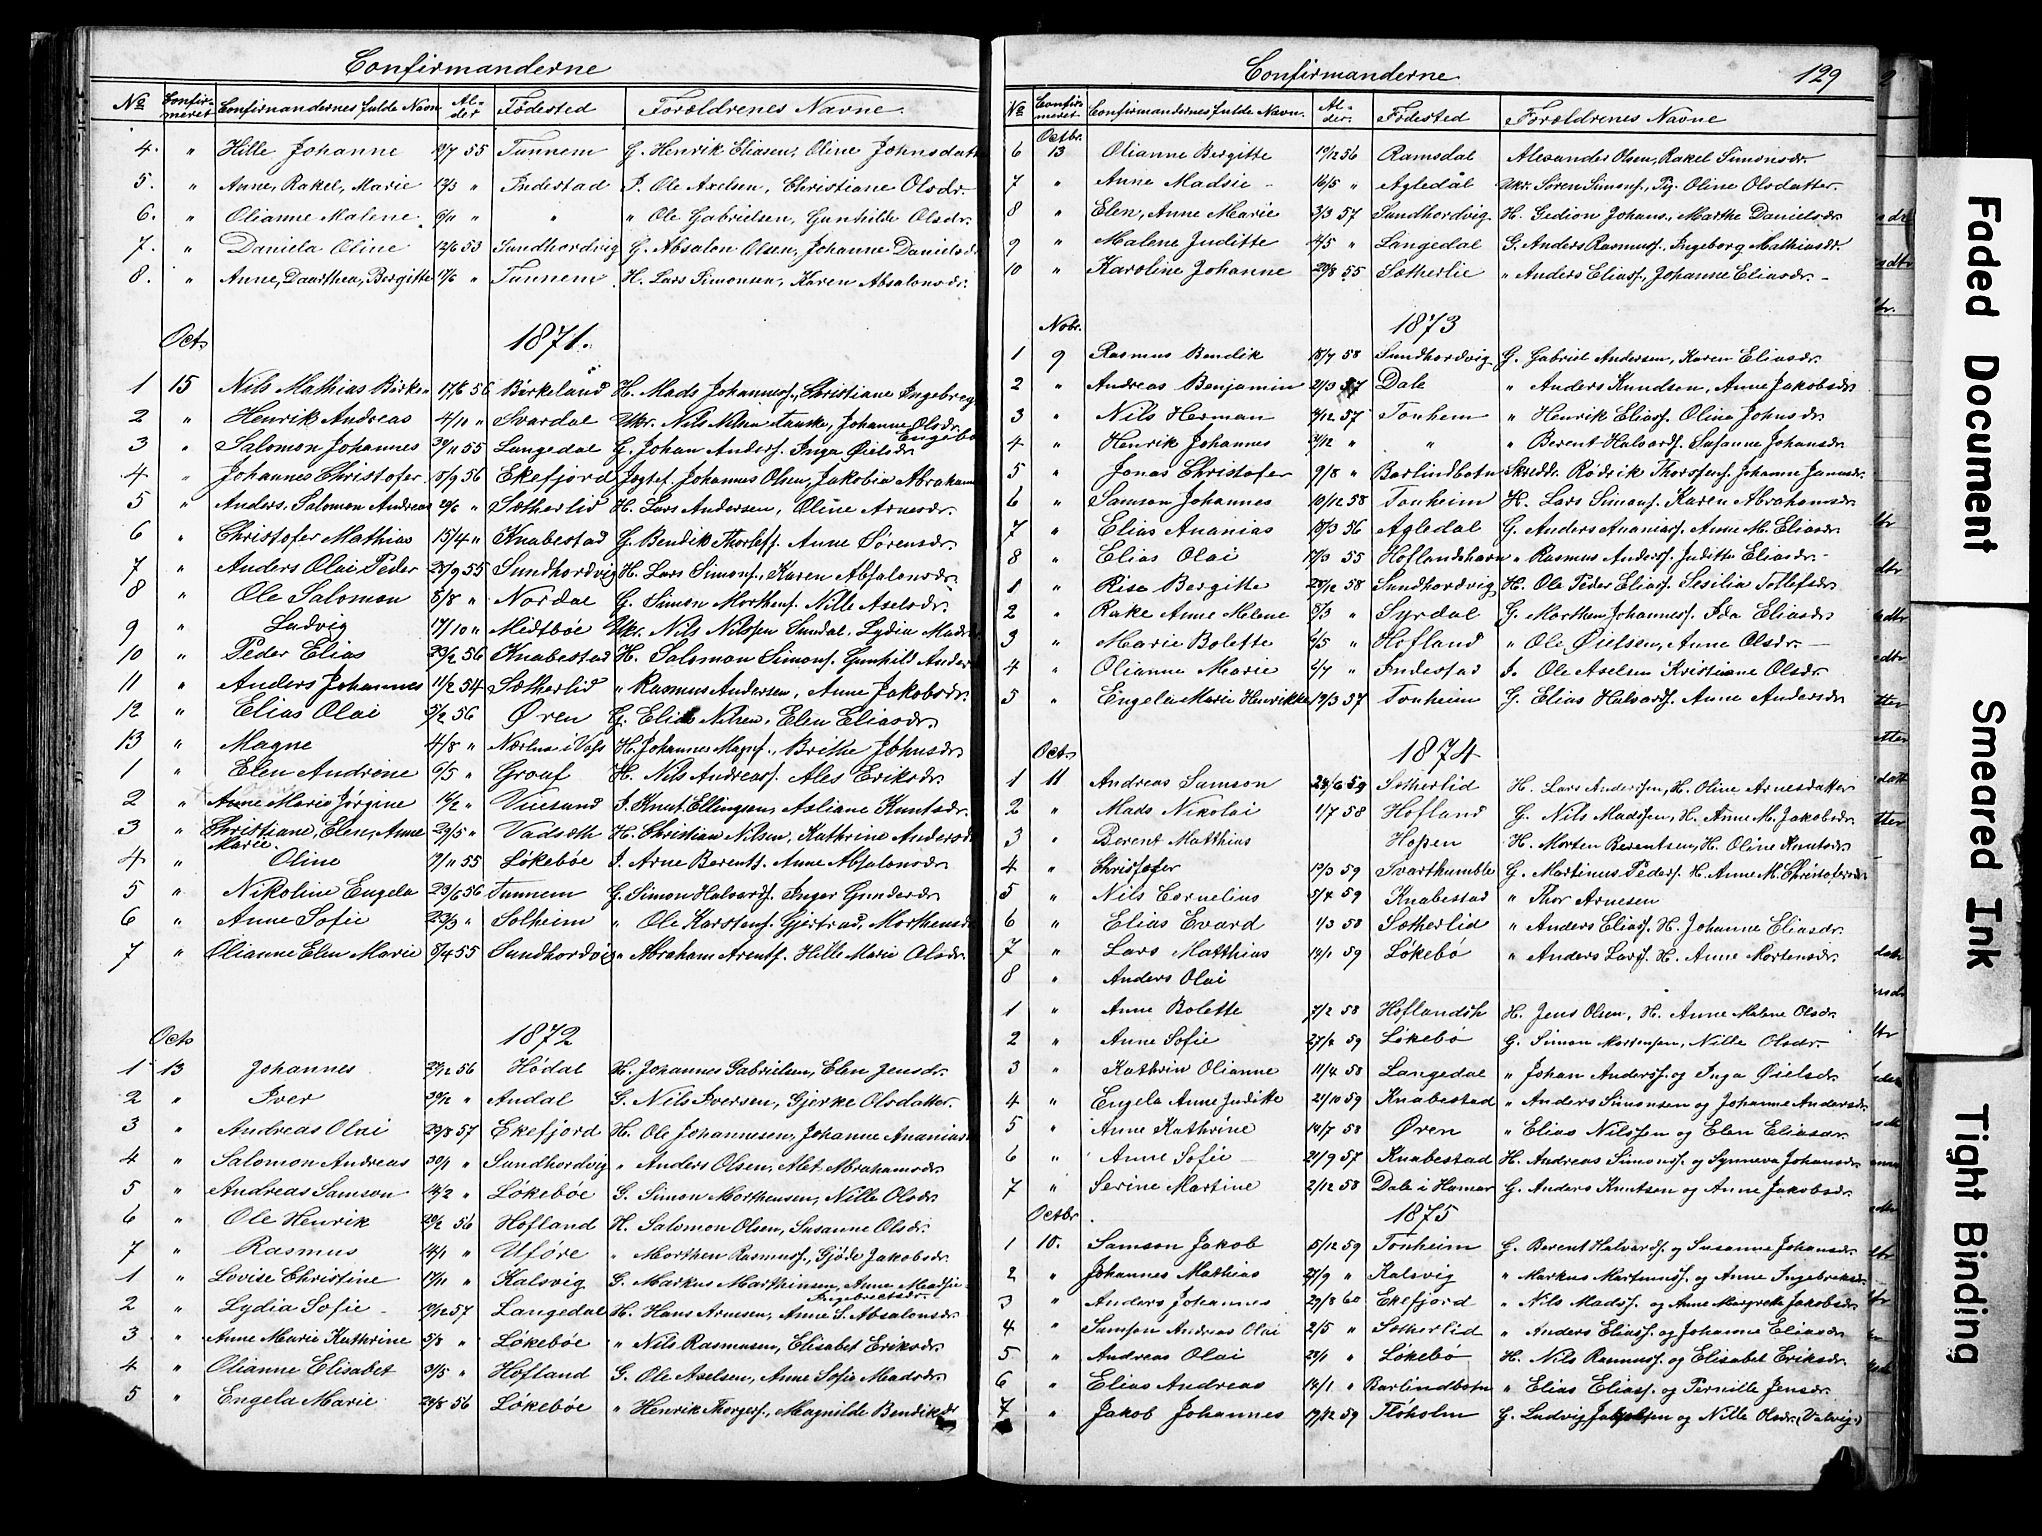 Confirmanderne
No Confirmeret Confirmandernes fulde Navn Alder Fødested Forældrenes Navne
4. " Hille Johanne 12/7 55 Tunnem G. Henrik Eliasen, Oline Johnsdatt
5. " Anne, Rakel, Marie 12/3 " Indestad I. Ole Axelsen, Christiane Olsdr.
6. " Olianne Malene 6/11 " " " Ole Gabrielsen, Gunhilde Olsdr.
7. " Daniela Oline 12/6 53 Sundhordvig G. Absalon Olsen, Johanne Danielsd
8. " Anne, Daarthea, Bergitte 17/6 " Tunnem H. Lars Simonsen, Karen Absalonsdr.
Oct. 1871.
1 15 Nils Mathias Birke 17/6 56 Birkeland H. Mads Johannesf., Christiane Ingebreg
2 " Henrik Andreas 4/10 " Svardal Ukr. Nils Nilsen Tauske, Johanne Olsdr.
3 " Salomon Johannes 30/11 55 Langedal G. Johan Andersf. Inga Øielsdr Engebo
4 " Johannes Christofer 18/9 56 Ekefjord Jegtef. Johannes Olsen, Jakobia Abraham
5 " Anders, Salomon Andreas 10/6 " Sætherlid H. Lars Andersen, Oline Arnesdr.
6 " Christofer Mathias 15/4 " Knabestad G. Bendik Thorlefs. Anne Sørensdr.
7 " Anders Olai Peder 23/9 55 Sundhordvig H. Lars Simonf., Karen Absalonsdr.
8 " Ole Salomon 5/8 " Nordal G. Simon Morthenf. Nille Axelsdr.
9 " Ludvig 17/10 " Midtbøe Ukr. Nils Nilssen Sundal. Lydia Mads
10 " Peder Elias 23/2 56 Knabestad H. Salomon Simonf. Gunhild Ander
11 " Anders Johannes 11/2 54 Sætherlid " Rasmus Andersen, Anne Jakobsdr.
12 " Elias Olai 3/2 56 Øren G. Elias Nilsen, Elen Eliasdr.
13 " Magne 4/8 " Nærlus i Vafs H. Johannes Magnf., Brithe Johnsdr
1 " Elen Andrine 6/5 " Groaf H. Nils Andreasf. Ales Eriksdr.
2 " Anne Marie Jørgine 16/2 " Viisund I. Knut Ellingsen, Asliane Knutsdr.
3 " Christiane, Elen, Anne Marie 29/5 " Vadsæth H. Christian Nilsen, Kathrine Andersd
4 " Oline 7/11 55 Løkebøe I. Arne Berentf. Anne Absalonsdr.
5 " Nikoline Engela 23/6 56 Tunnem G. Simon Halvardf. Inger Gundersdr.
6 " Anne Sofie 23/3 " Solheim " Ole Karstenf. Gjertrud, Morthensd
7 " Olianne Elen Marie 8/4 55 Sundhordvig " Abraham Arentf. Hille Marie Olsdr.
Oct. 1872
1 13 Johannes 27/12 56 Hødal H. Johannes Gabrielsen, Elen Jensdr.
2 " Iver 30/12 " Andal G. Nils Iversen, Gjerke Olsdatter.
3 " Andreas Olai 23/8 57 Ekefjord H. Ole Johannesen, Johanne Ananias
4 " Salomon Andreas 30/1 " Sundhordvig " Anders Olsen, Alet Abrahamsdr
5 " Andreas Samson 14/2 " Løkebøe G. Simon Morthensen, Nille Olsdr.
6 " Ole Henrik 29/2 56 Hofland H. Salomon Olsen, Susanne Olsdr.
7 " Rasmus 14/1 " Uføre " Morthen Rasmusf., Gjøde Jakobsdr.
1 " Lovise Christine 17/11 " Kalsvig G. Markus Marthinsen, Anne Madsie Ingebretsdr.
2 " Lydia Sofie 19/12 57 Langedal H. Hans Arnesen, Anne S. Absalonsdr.
3 " Anne Marie Kathrine 5/8 " Løkebøe " Nils Rasmusen, Elisabet Eriksdr.
4 " Olianne Elisabet 31/5 " Hofland G. Ole Axelsen, Anne Sofie Madsdr.
5 " Engela Marie 29/8 56 Løkebøe " Henrik Thorgerf., Magnilde Bendiksdr
Confirmanderne 129
No Confirmeret Confirmandernes fulde Navn. Alder. Fødested Forældrenes Navne
Octbr.
6 13 Olianne Bergitte 19/12 56 Ramsdal Alexander Olsen, Rakel Simonsdr.
7 " Anne Madsie 16/5 " Agledal Ukr. Søren Simonf., Pig. Oline Olsdatter.
8 " Elen, Anne Marie 3/3 57 Sundhordvig H. Gedion Johans., Marthe Danielsdr.
9 " Malene Juditte 4/5 " Langedal G. Anders Rasmusf., Ingeborg Mathiasdr.
10 " Karoline Johanne 29/8 55 Sætherlie " Anders Eliasf., Johanne Eliasdr.
Nobr. 1873
1 9 Rasmus Bendik 18/7 58 Sundhordvig G. Gabriel Andersen, Karen Eliasdr.
2 " Andreas Benjamin 21/3 57 Dale " Anders Knudsen, Anne Jakobsdr
3 " Nils Herman 7/12 57 Tonhem " Henrik Eliasf. Oline Johnsdr
4 " Henrik Johannes 3/12 " " " Berent Halvardf. Susanne Johansdr.
5 " Jonas Christofer 9/8 " Barlindbotn Skreddr. Rødrik Thorstenf. Johanne Jansdr.
6 " Samson Johannes 10/12 58 Tonheim H. Lars Simonf. Karen Abrahamsdr.
7 " Elias Ananias 18/3 56 Agledal G. Anders Ananiasf. Anne M. Eliasdr.
8 " Elias Olai 17/3 55 Hoflandshavn " Rasmus Andersf. Juditte Eliasdr.
1 " Rise Bergitte 28/12 58 Sundhordvig H. Ole Peder Eliasf. Sesilia Tollefsdr.
2 " Rake Anne Melene 5/3 " Syrdal G. Morthen Johannesf. Ida Eliasdr.
3 " Marie Bolette 6/5 " Hofland " Ole Øielsen, Anne Olsdr.
4 " Olianne Marie 6/7 " Indestad I. Ole Axelsen Kristiane Olsdr.
5 " Engela Marie Henrikke 19/3 57 Tonheim G. Elias Halvardf. Anne Andersdr
Oct. 1874
1 11 Andreas Samson 24/6 59 Sætherlid H. Lars Anderssen, H. Oline Arnesdatter
2 " Mads Nikolai 1/7 58 Hofland G. Nils Madssen, H. Anne M. Jakobsdr.
3 " Berent Matthias Hopen H. Morten Berentsen, H. Oline Knutsdr
4 " Christofer 13/3 59 Svarthumble G. Martinus Pedersf. H. Anne M. Christofersdr
5 " Nils Cornelius 5/4 59 Knabestad " Thor Arnesen
6 " Elias Evard 1/3 58 Sætherlid " Anders Eliasf. H. Johanne Eliasdr.
7 " Lars Matthias 14/1 59 Løkebø " Anders Larsf. H. Anne Mortensdr.
8 " Anders Olai
1 " Anne Bolette 7/2 58 Hoflandsh H. Jens Olsen, H. Anne Malene Olsdr.
2 " Anne Sofie 27/2 59 Løkebø G. Simon Mortensen, Nille Olsdr.
3 " Kathrin Olianne 11/4 58 Langedal " Johan Andersf. og Inga Øielsdr.
4 " Engela Anne Juditte 21/10 59 Knabestad " Anders Simonsen og Johanne Andersdr
5 " Anne Kathrine 14/7 58 Øren " Elias Nilssen og Elen Eliasdr.
6 " Anne Sofie 21/9 57 Knabestad H. Andreas Simonsf. og Synneva Johansdr.
7 " Serine Martine 2/12 58 Dale i Hamar G. Anders Knutsen og Anne Jakobsdr.
Octbr. 1875
1 10. Samson Jakob 5/12 59 Tonheim G. Berent Halvardsf. og Susanne Johansdr.
2 " Johannes Mathias 27/9 " Kalsvig " Markus Martinusf. og Anne Ingebreksdr
3 " Anders Johannes 29/8 60 Ekefjord " Nils Madsf. og Anne Margrete Jakobsdr
4 " Samson Andreas Olai 2/5 " Sætherlid " Anders Eliasf. og Johanne Eliasdr
5 " Andreas Olai 23/1 " Løkebø H. Nils Rasmusf. og Elisabet Eriksdr.
6 " Elias Andreas 14/1 " Barlindbotn " Elias Eliasf. og Pernille Jensdr.
7 " Jakob Johannes 17/12 59 Fløholm G. Ludvig Jakobsen og Nille Olsdr. (Valvig)
Faded Document
Smeared Ink
Tight Binding